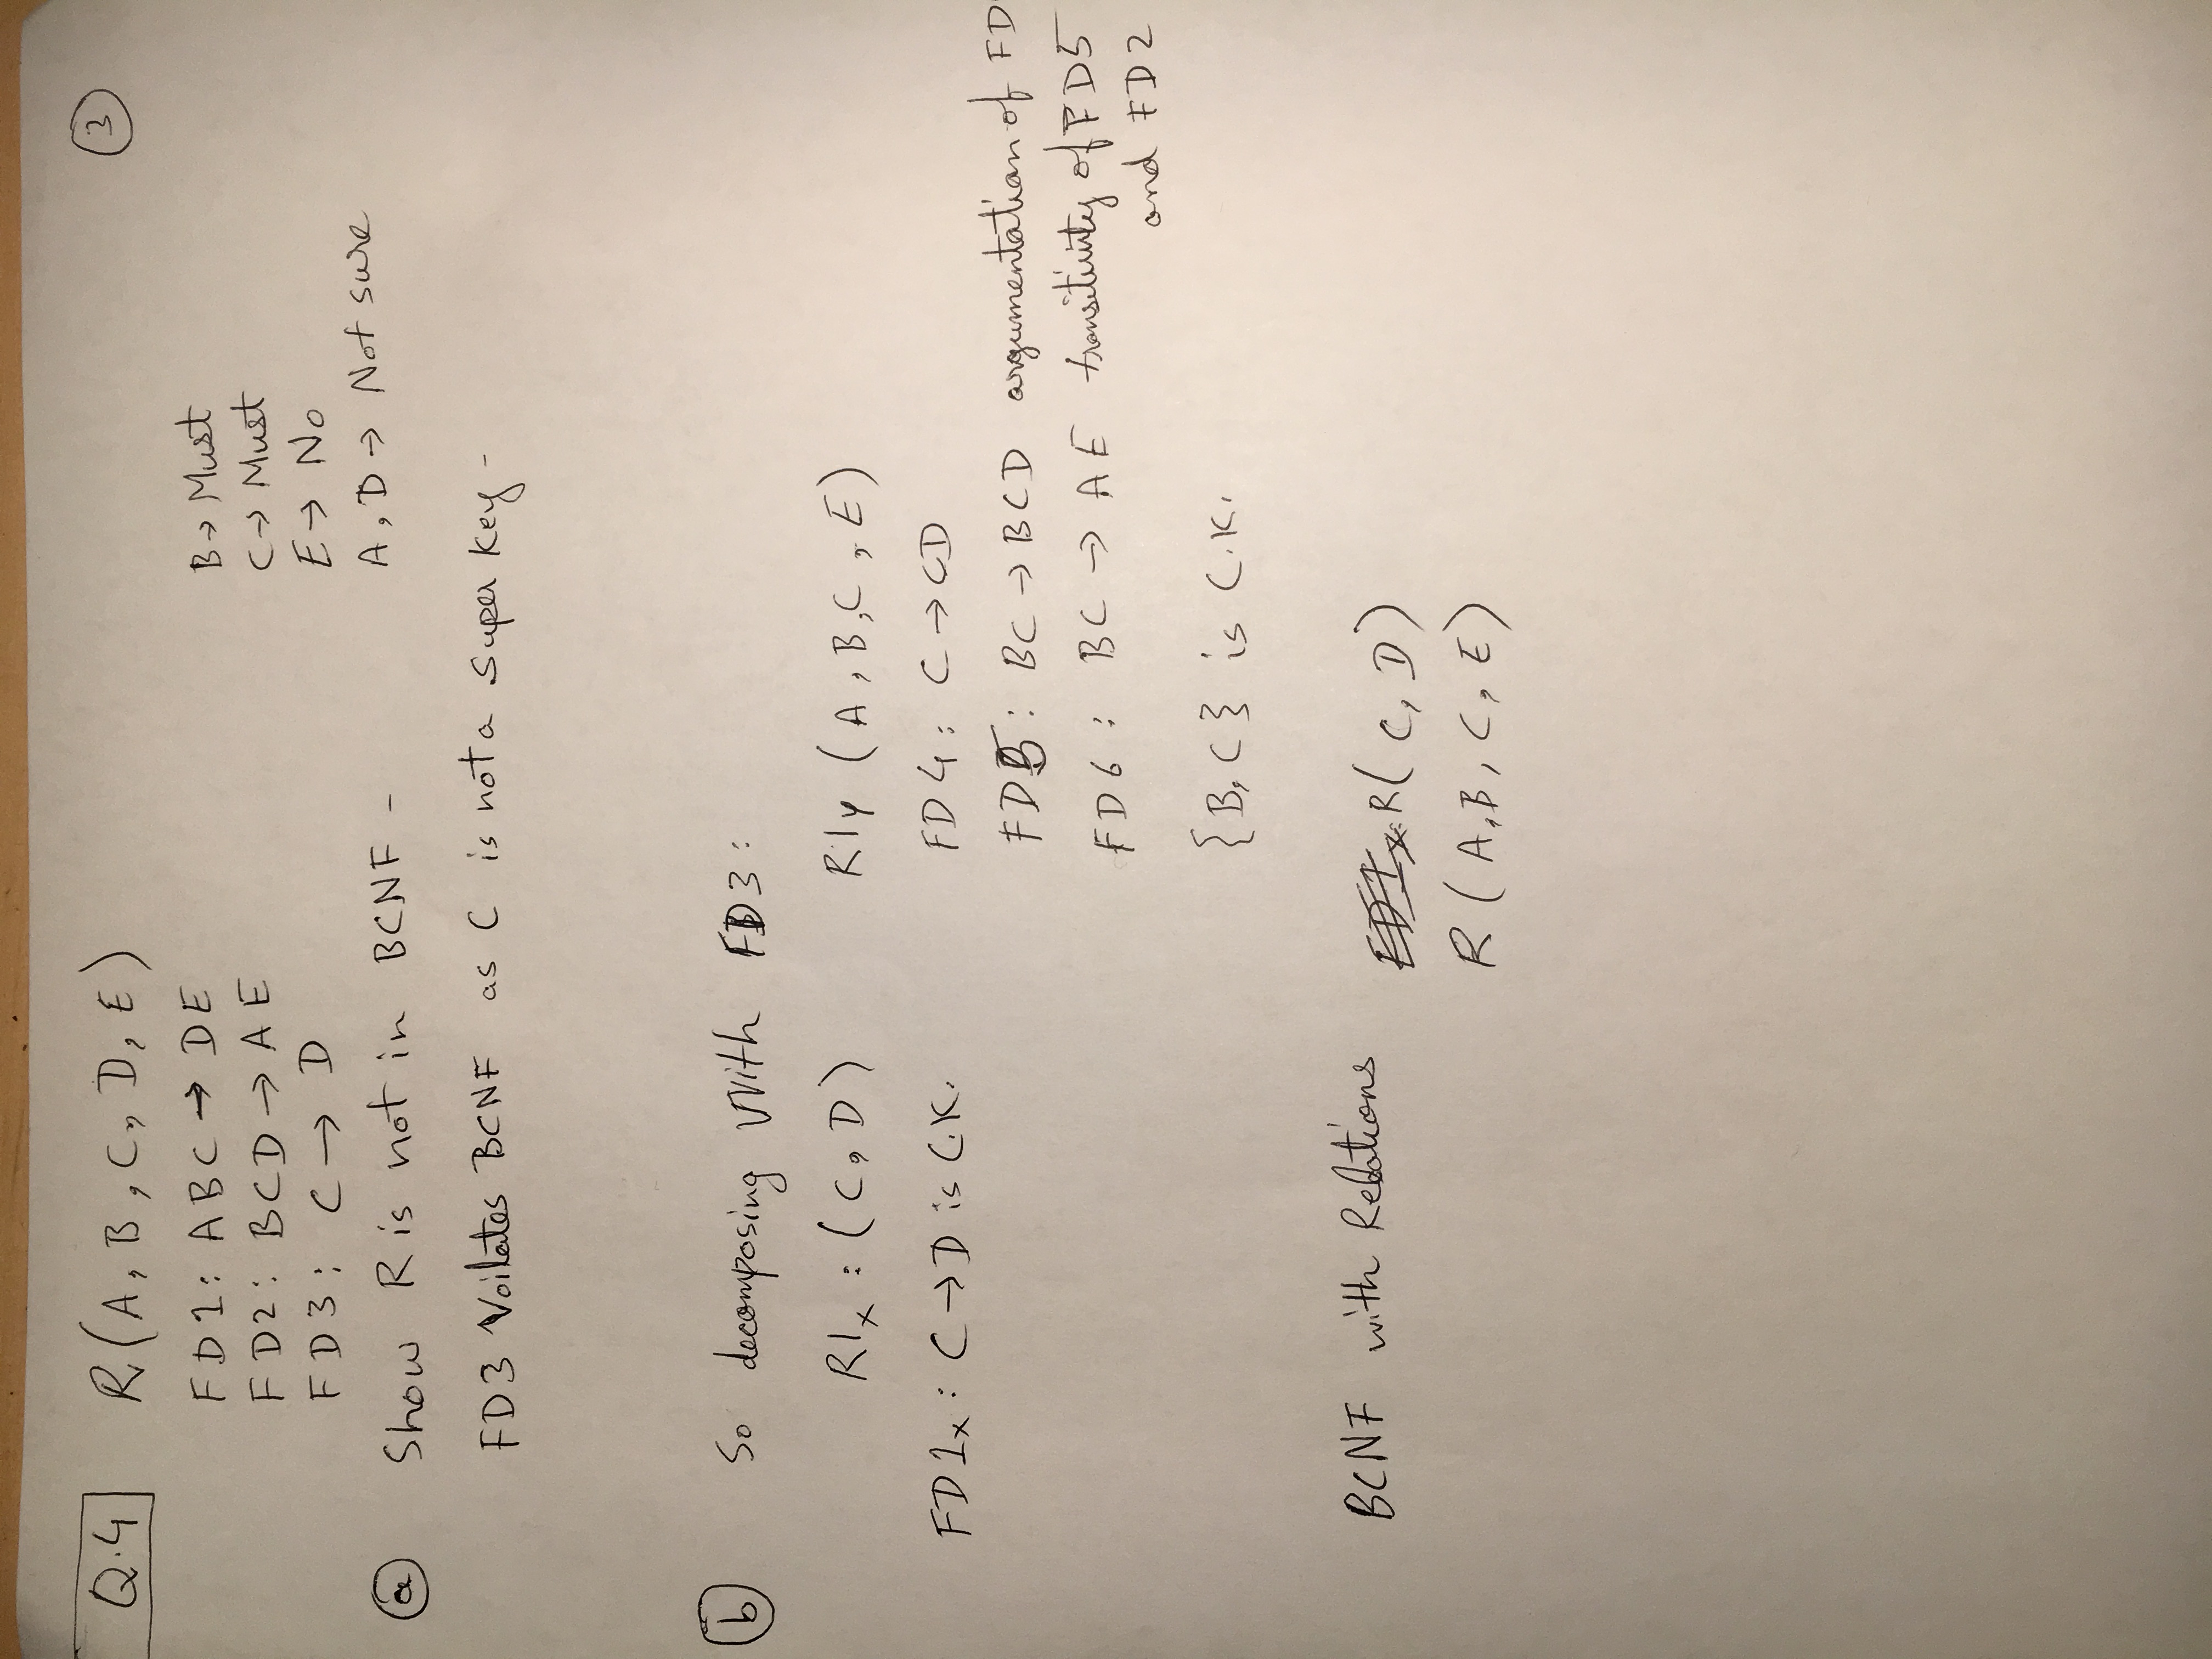 Q.4 R(A, B, C, D, E) 3
FD1: ABC → DE
B → Must
FD2: BCD → AE
C → Must
FD3: C → D
E → No
A, D → Not sure
a Show R is not in BCNF -
FD3 Voilates BCNF as C is not a Super Key -
b So decomposing With FD3:
R1x: (C, D) R1y (A, B, C, E)
FD1x: C → D is C.K. FD4: C → CD
FD5: BC → BCD argumentation of FD
FD6: BC → AE transitivity of FD5
and FD2
{B, C} is C.K.
BCNF with Relations R(C, D)
R(A, B, C, E)